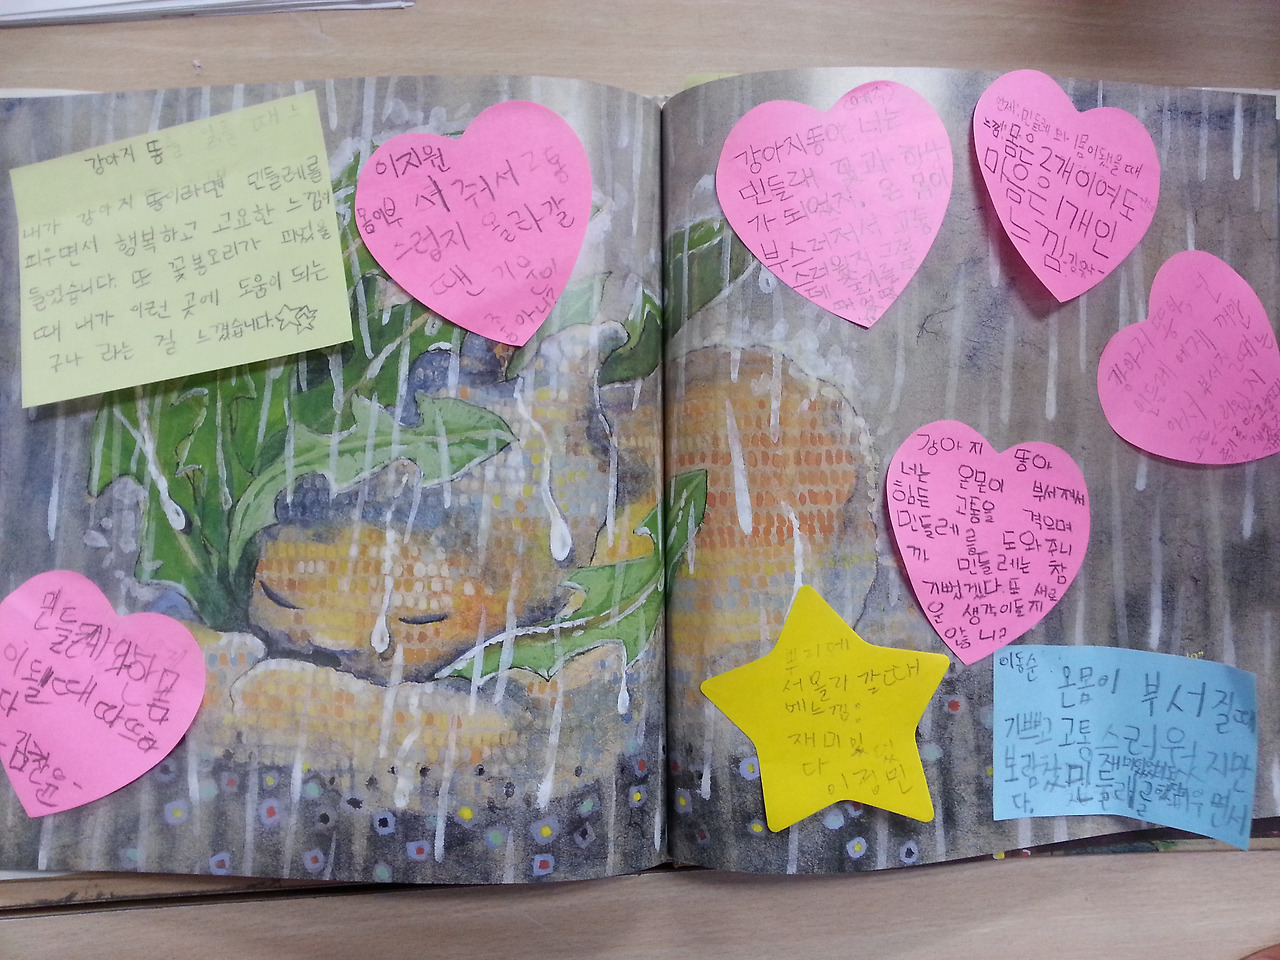 강아지 똥을 읽을 때 느
내가 강아지 똥이라면 민들레를
피우면서 행복하고 고요한 느낌이
들었습니다. 또 꽃봉오리가 피었을
때 내가 이런 곳에 도움이 되는
구나 라는 걸 느꼈습니다.
이지원
몸이 부서져서 고통
스럽지 올라갈
땐 기분이
좋아니?
강아지똥아 너는
민들래 꽃과 하나
가 되었지, 온 몸이
부스러져서 고통
스러웠지 그런
데 꽃
언제: 민들레와 한몸이 됐을 때
느낌: 몸이
마음은 2개이여도
마음은 1개인
느낌
강아지 똥아, 난
민들레에게
부서진 때는
강아지 똥아
너는 온몸이 부서져서
힘든 고통을 겪으며
민들레를 도와주니
까 민들레는 참
기뻤겠다. 또 새로
운 생각이 들지
않니?
민들레와 한 몸
이 될 때 따뜻하
다
-김찬윤-
뿌리에
서 올라갈 때
에 느낌:
재미있
다
이정민
이동순
온몸이 부서질 때
기쁘고 고통스러웠지만
보람찼
민들래를 피우면서
다.